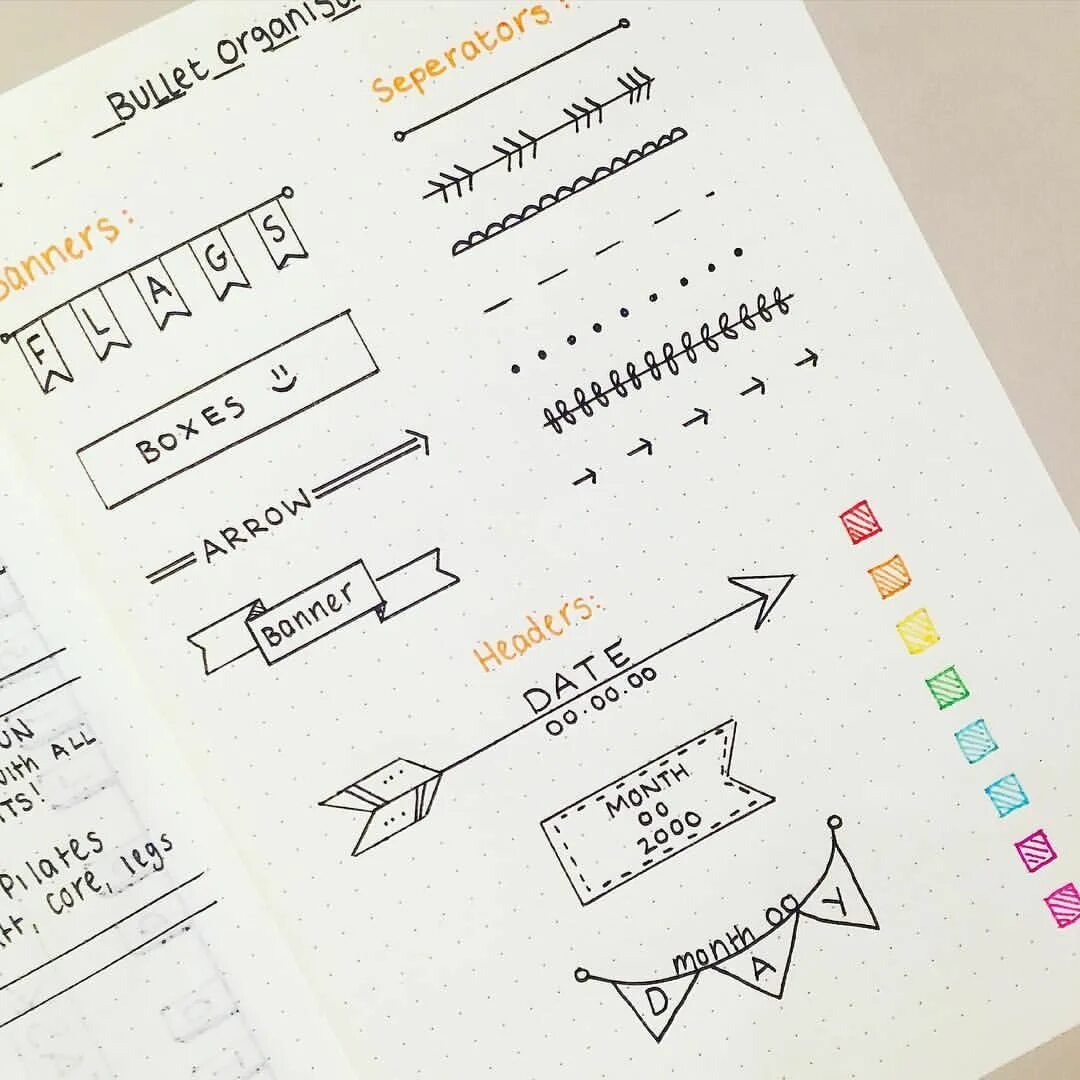 Bullet
Banners:
FLAGS
BOXES
ARROW
Banner
Seperators:
Headers:
DATE
00.00.00
MONTH
00
2000
month 00
DAY
with ALL
Pilates
core, legs